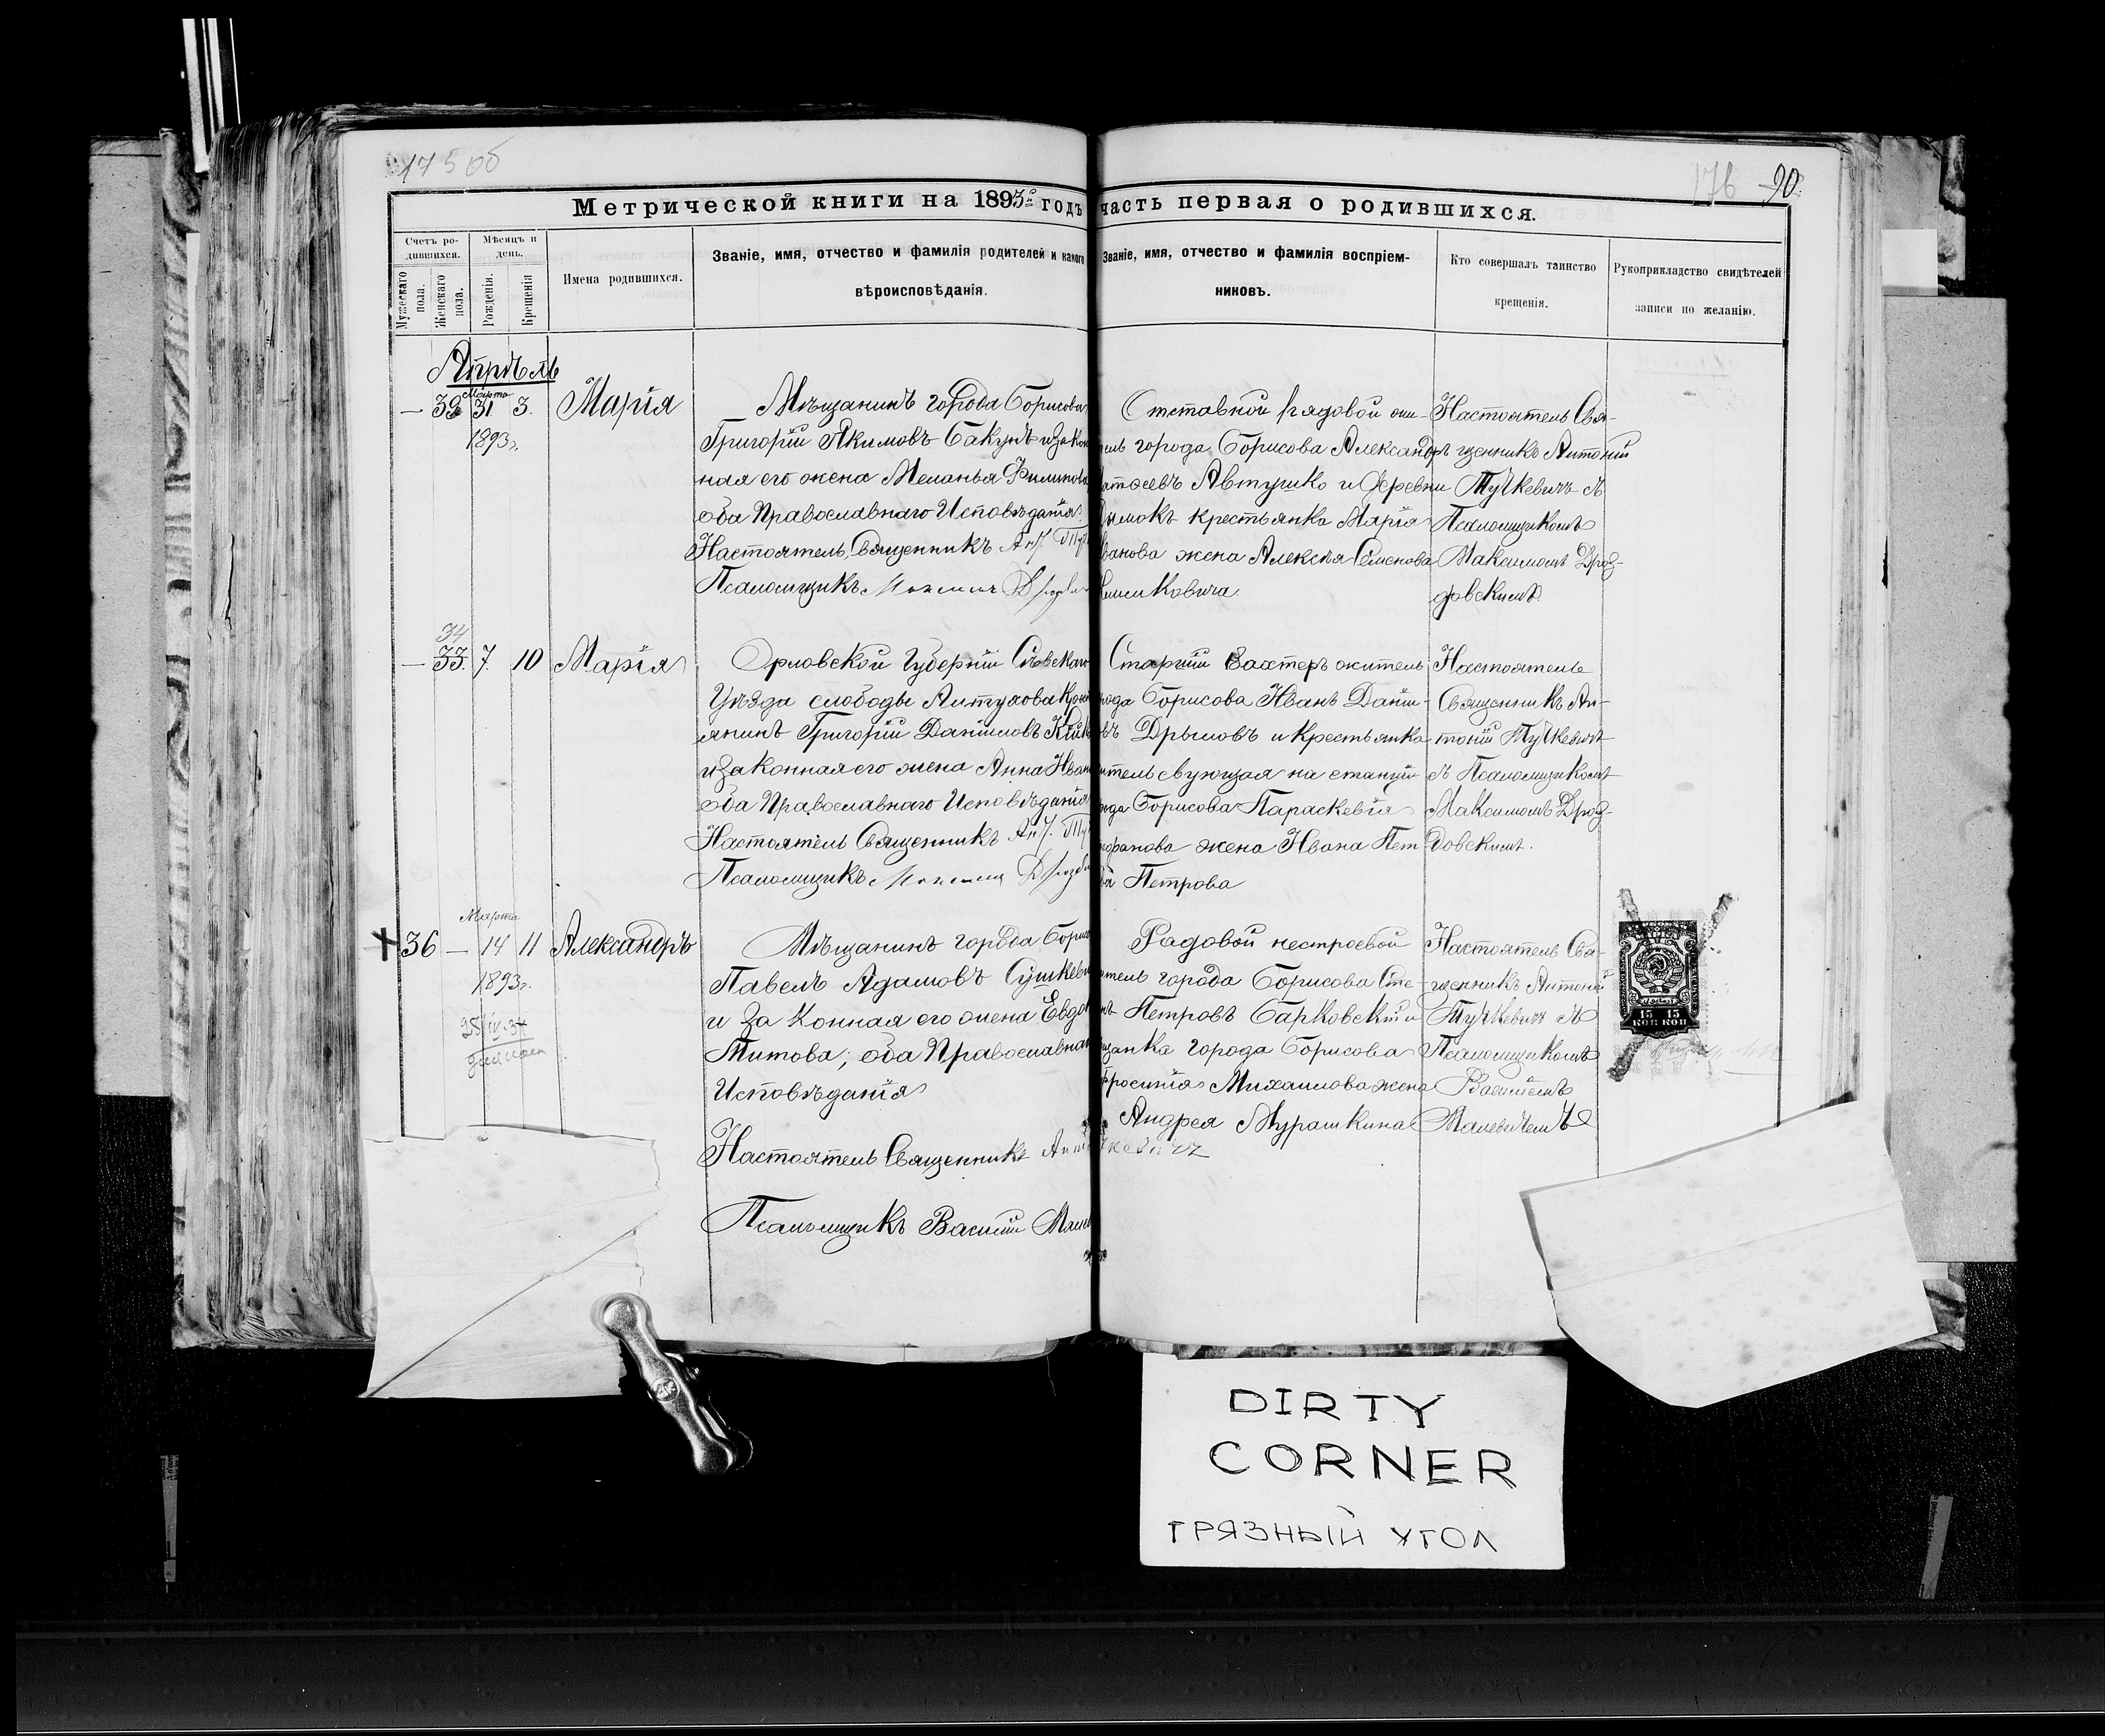 175 об
176 90.
Метрической книги на 1893го годъ часть первая о родившихся.
Счетъ ро-
дившихся.
Мужескаго
пола.
Женскаго
пола.
Мѣсяцъ и
день.
Рожденія.
Крещенія
Имена родившихся.
Званіе, имя, отчество и фамилія родителей и какого
вѣроисповѣданія.
Званіе, имя, отчество и фамилія воспріем-
никовъ.
Кто совершалъ таинство
крещенія.
Рукоприкладство свидѣтелей
записи по желанію.
Апрѣль
Марта
31 3.
1893 г.
Марія
Мѣщанинъ города Борисова
Григорій Якимовъ Бакунъ и закон
ная его жена Меланья Филипова
оба Православнаго Исповѣданія.
Настоятель Священникъ Ант. Туч
Псаломщикъ Максим Дроздов
Отставной рядовой жи-
тель города Борисова Александръ
Автушко и деревни
крестьянка Марія
Иванова жена Алексѣя Семенова
Климковича
Настоятель Свя-
щенникъ Антоній
Тучкевичъ съ
Псаломщикомъ
Максимомъ Дроз-
довскимъ.
34
— 33. 7. 10 Марія
Орловской Губерніи Сѣвскаго
Уѣзда слободы Алтухова Крест
янинъ Григорій Даніиловъ
и законная его жена Анна Иван
оба Православнаго Исповѣданія
Настоятель Священникъ Ант. Туч
Псаломщикъ Максим Дроздов
Старшій Вахтеръ житель
города Борисова Иванъ Даніи-
овъ Дрымовъ и крестьянка
жительствующая на станціи
города Борисова Параскевія
жена Ивана Пет
Петрова
Настоятель
Священникъ Ан-
тоній Тучкевичъ
съ Псаломщикомъ
Максимомъ Дроз-
довскимъ.
Марта
36 — 14 11 Александръ
1893 г.
25/IV-34
Мѣщанинъ города Борис
Павелъ Адамовъ Сушкеви
и законная его жена Евдок
Титова; оба Православнаго
Исповѣданія
Настоятель Священникъ Ант кевичъ
Псаломщикъ Василій Мале
Рядовой нестроевой
житель города Борисова Сте-
нъ Петровъ Барковскій и
щанка города Борисова
фросинія Михаилова жена
Андрея Мурашкина
Настоятель Свя-
щенникъ Антоній
Тучкевичъ съ
Псаломщикомъ
Василіемъ
Малевичемъ
15 15
КОП КОП
DIRTY
CORNER
ГРЯЗНЫЙ УГОЛ